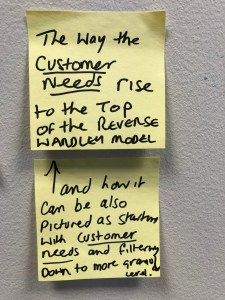 The way the
Customer
Needs rise
to the Top
of the REVERSE
WARDLEY MODEL
↑ and how it
Can be also
Pictured as starting
with customer
needs and filtering
Down to more granular
level.